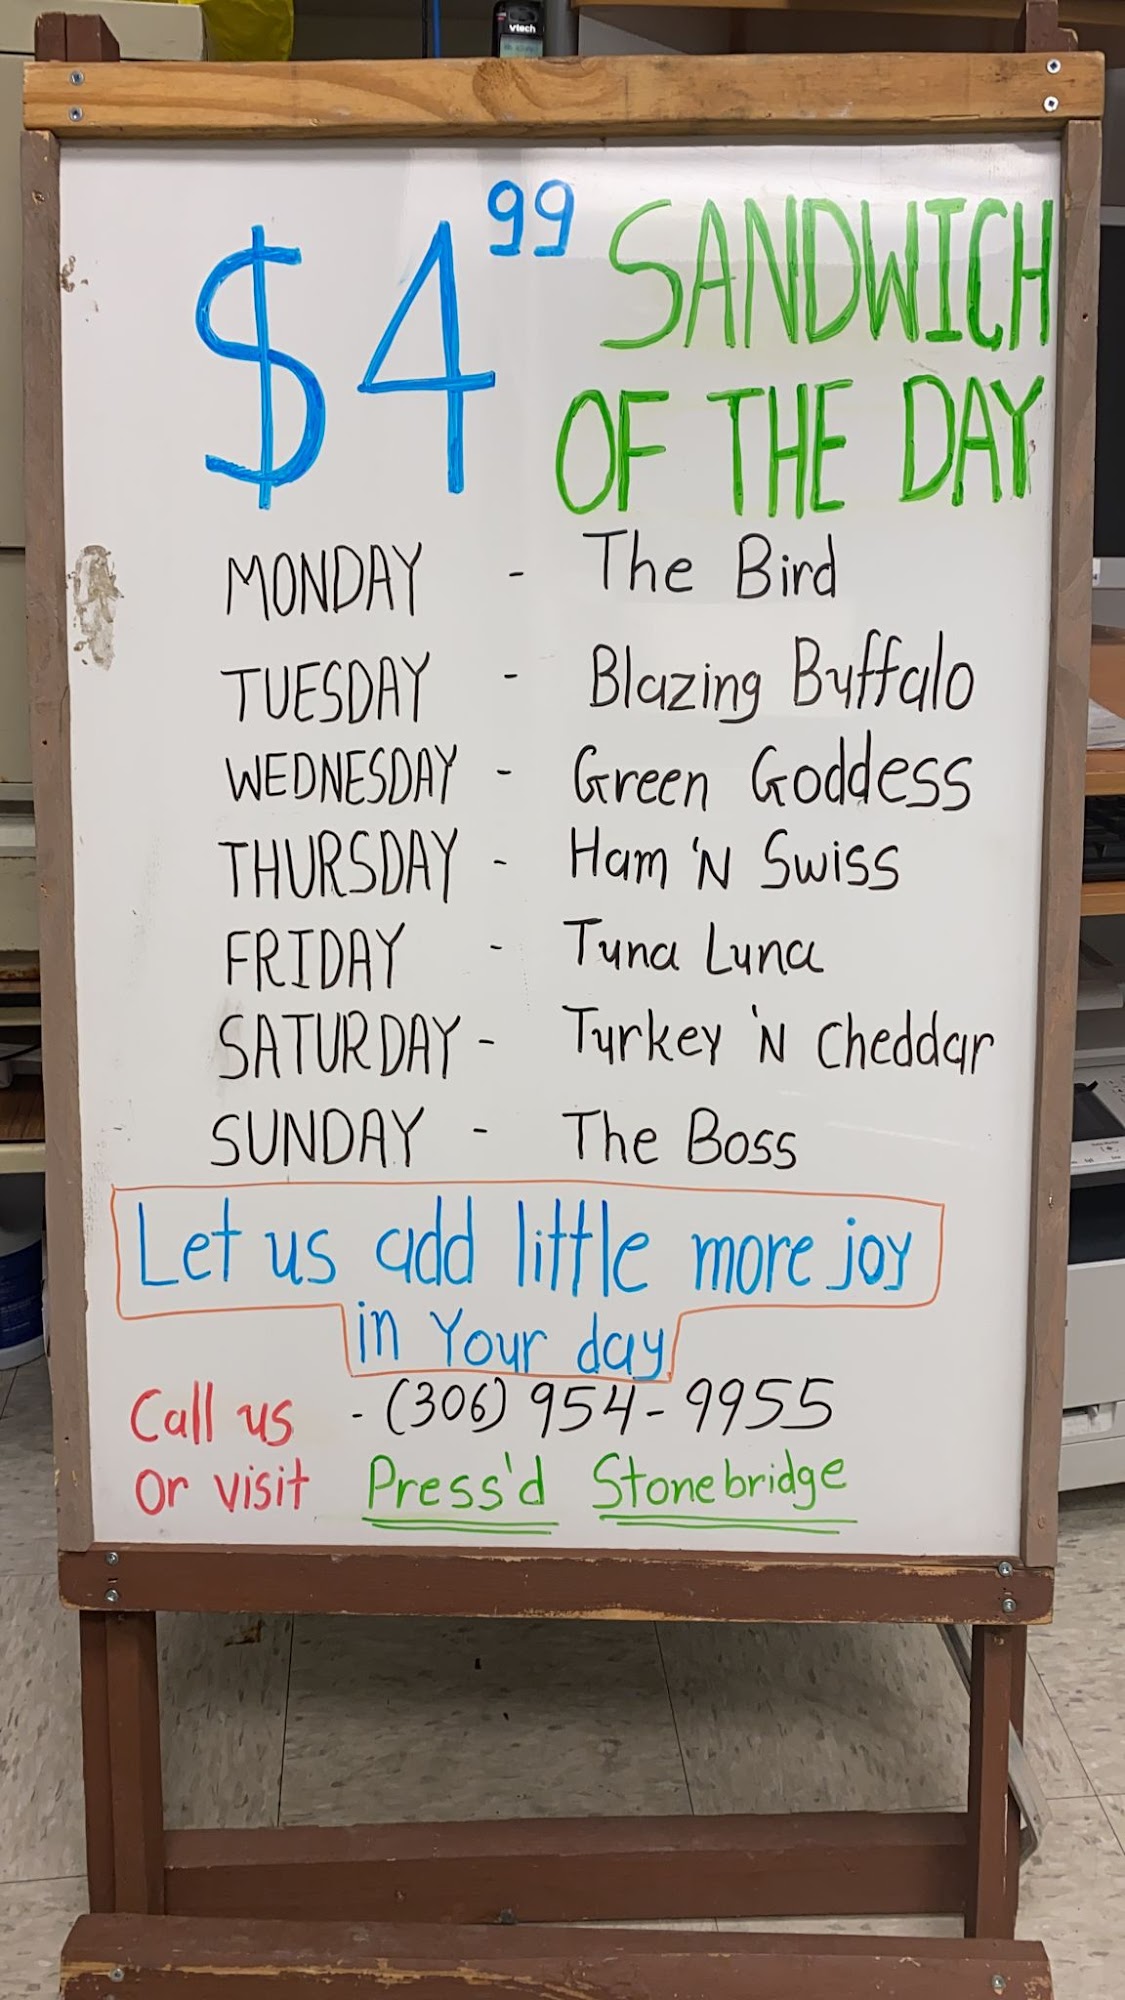 vtech
$4.99 SANDWICH
OF THE DAY
MONDAY - The Bird
TUESDAY - Blazing Buffalo
WEDNESDAY - Green Goddess
THURSDAY - Ham 'N Swiss
FRIDAY - Tuna Luna
SATURDAY - Turkey 'N Cheddar
SUNDAY - The Boss
Let us add little more joy
in Your day
Call us - (306) 954-9955
Or visit Press'd Stonebridge